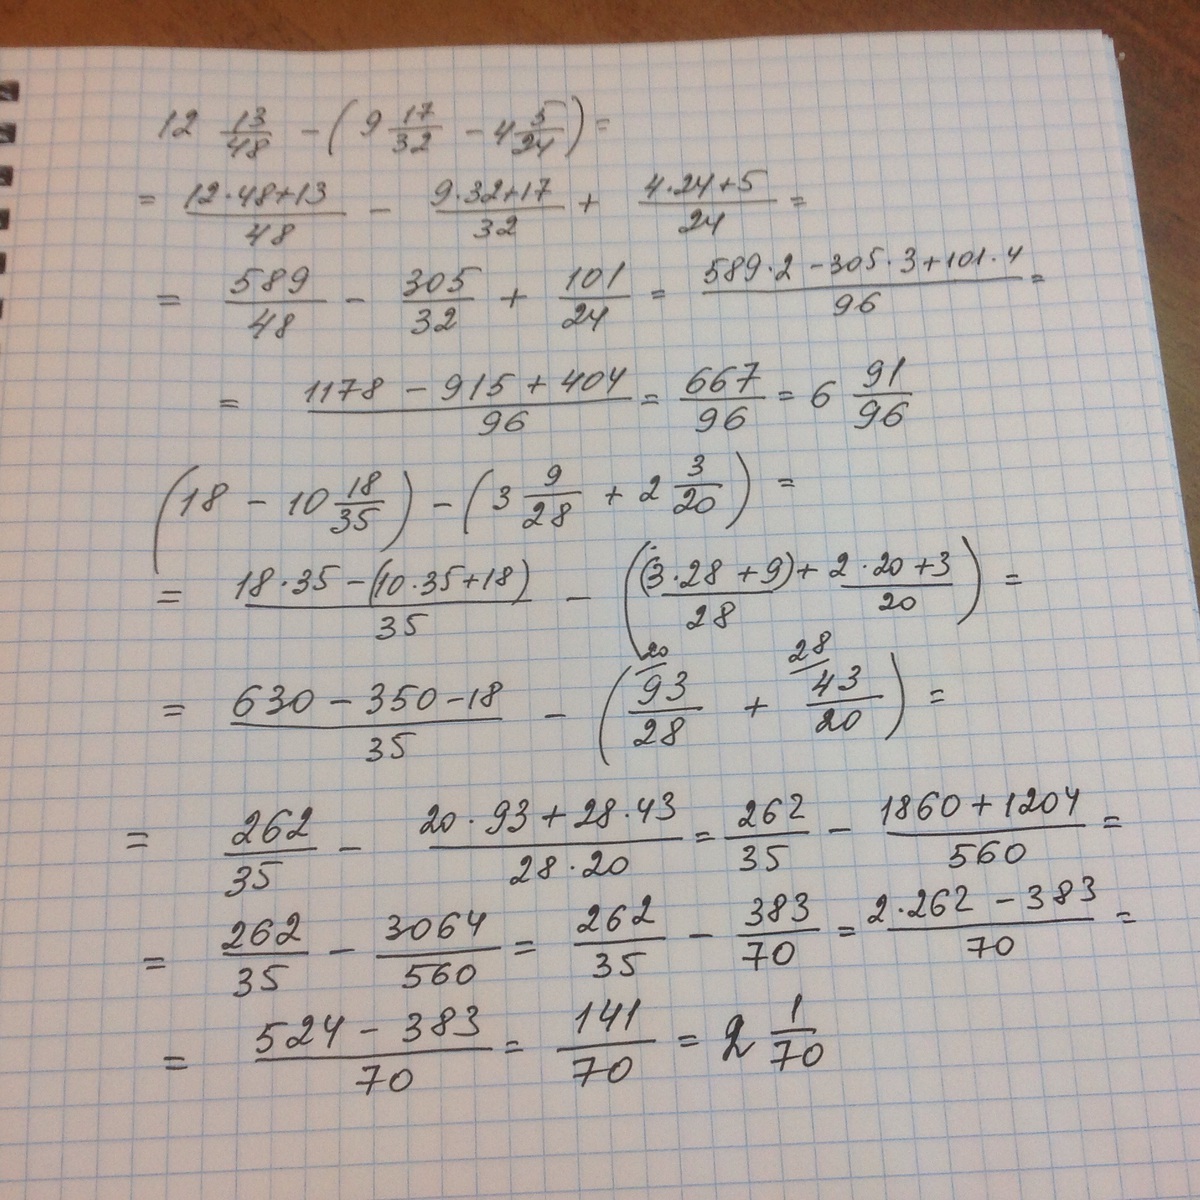 12 13/48 - (9 17/32 - 4 5/24) =
= (12·48+13)/48 - (9·32+17)/32 + (4·24+5)/24 =
= 589/48 - 305/32 + 101/24 = (589·2 - 305·3 + 101·4)/96 =
= (1178 - 915 + 404)/96 = 667/96 = 6 91/96
(18 - 10 18/35) - (3 9/28 + 2 3/20) =
= (18·35 - (10·35+18))/35 - ((3·28+9)/28 + (2·20+3)/20) =
= (630 - 350 - 18)/35 - (20/ 93/28 + 28/ 43/20) =
= 262/35 - (20·93 + 28·43)/(28·20) = 262/35 - (1860 + 1204)/560 =
= 262/35 - 3064/560 = 262/35 - 383/70 = (2·262 - 383)/70 =
= (524 - 383)/70 = 141/70 = 2 1/70